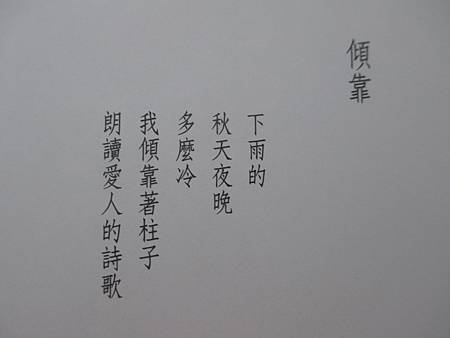 傾靠
下雨的
秋天夜晚
多麼冷
我傾靠著柱子
朗讀愛人的詩歌